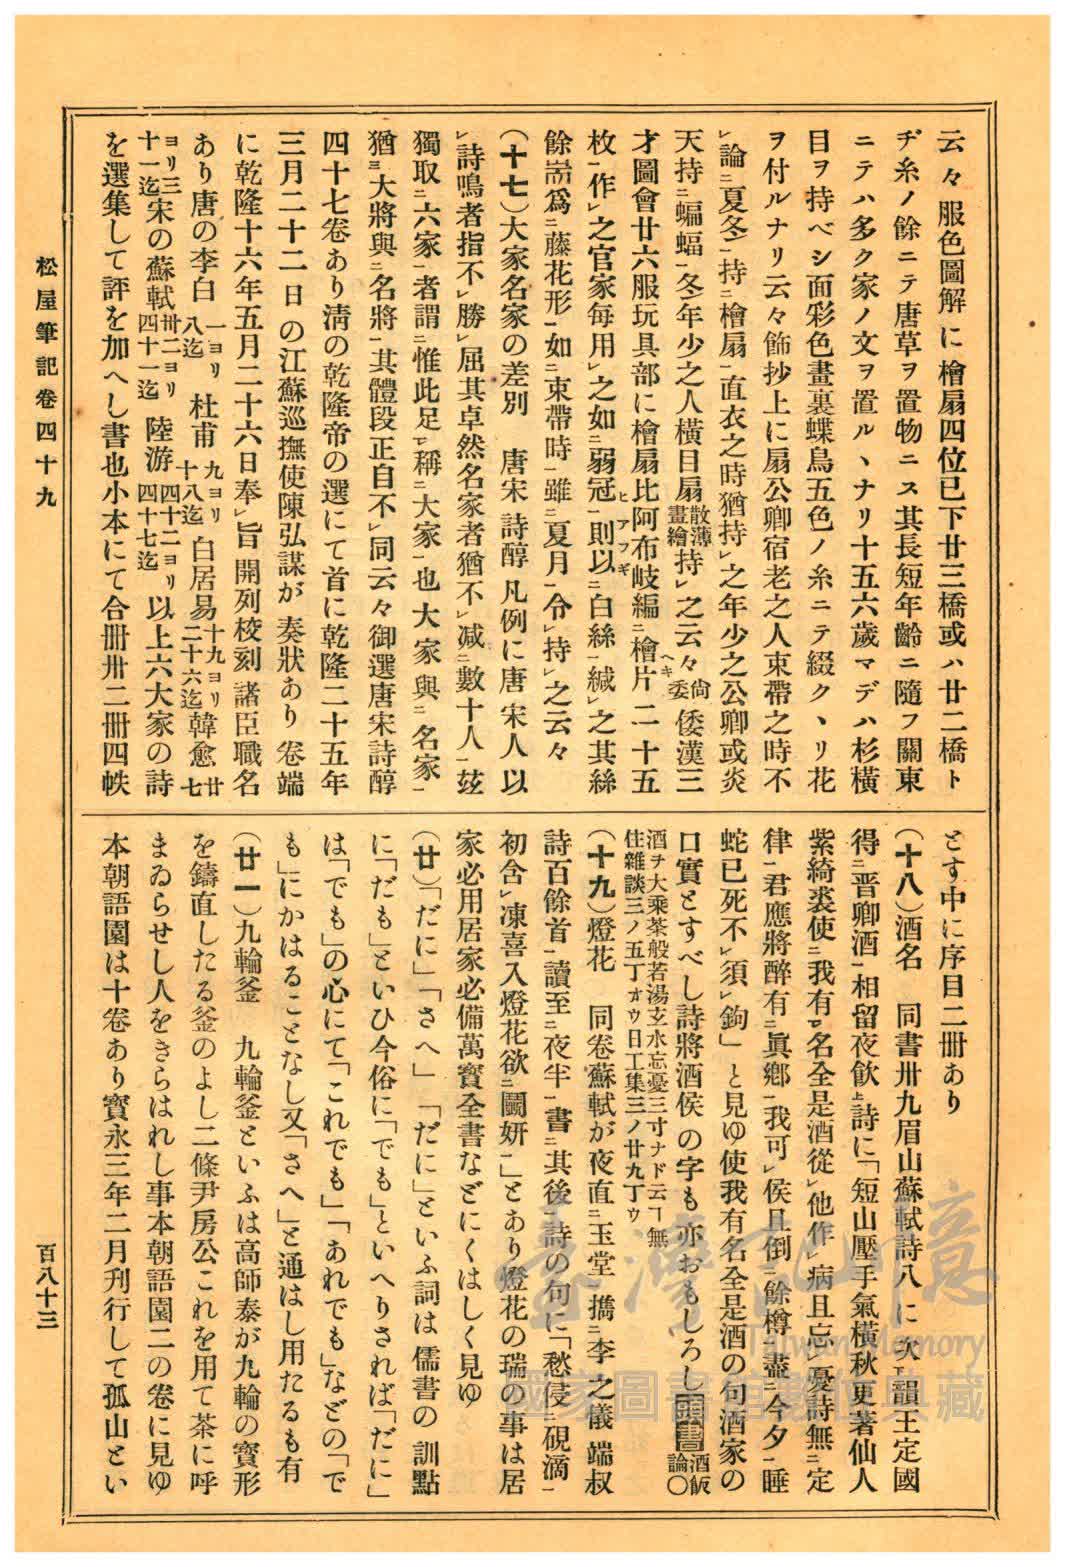 云々服色圖解に檜扇四位已下廿三橋或ハ廿二橋ト
ヂ糸ノ餘ニテ唐草ヲ置物ニス其長短年齡ニ隨フ關東
ニテハ多ク家ノ文ヲ置ルヽナリ十五六歲マデハ杉橫
目ヲ持ベシ面彩色畫裏蝶鳥五色ノ糸ニテ綴クヽリ花
ヲ付ルナリ云々飾抄上に扇公卿宿老之人束帶之時不
レ論ニ夏冬一持ニ檜扇一直衣之時猶持レ之年少之公卿或炎
天持ニ蝙蝠一冬年少之人橫目扇散薄畫繪持レ之云々尙ヘキ委倭漢三
才圖會廿六服玩具部に檜扇比阿布岐編ニ檜片二十五
枚一作レ之官家每用レ之如ニ弱冠一則以ニ白絲一緘レ之其絲
餘爲ニ藤花形一如ニ束帶時一雖ニ夏月一令レ持レ之云々
(十七)大家名家の差別 唐宋詩醇凡例に唐宋人以
レ詩鳴者指不レ勝レ屈其卓然名家者猶不レ減ニ數十人一玆
獨取ニ六家一者謂ニ惟此足ニ稱ニ大家一也大家與ニ名家一
猶ヨ大將與ニ名將一其體段正自不レ同云々御選唐宋詩醇
四十七卷あり淸の乾隆帝の選にて首に乾隆二十五年
三月二十二日の江蘇巡撫使陳弘謀が奏狀あり卷端
に乾隆十六年五月二十六日奉レ旨開列校刻諸臣職名
あり唐の李白一ヨリ八迄杜甫九ヨリ十八迄白居易十九ヨリ二十六迄韓愈廿七
ヨリ三十一迄宋の蘇軾卅二ヨリ四十一迄陸游四十二ヨリ四十七迄以上六大家の詩
を選集して評を加へし書也小本にて合冊卅二冊四帙
とす中に序目二冊あり
(十八)酒名 同書卅九眉山蘇軾詩八に次ニ韻王定國
得ニ晉卿酒一相留夜飮上詩に「短山壓手氣橫秋更著仙人
紫綺裘使ニ我有一名全是酒從レ他作レ病且忘レ憂詩無ニ定
律一君應將醉有ニ眞鄕一我可レ侯且倒ニ餘樽一盡ニ今夕一睡
蛇已死不レ須レ鉤」と見ゆ使我有名全是酒の句酒家の
口實とすべし詩將酒侯の字も亦おもしろし頭書酒飯論〇
酒ヲ大乘茶般若湯玄水忘憂三寸ナド云ヿ無
住雜談三ノ五丁オウ日工集三ノ廿九丁ウ
(十九)燈花 同卷蘇軾が夜直ニ玉堂一攜ニ李之儀端叔
詩百餘首一讀至ニ夜半一書ニ其後一詩の句に「愁侵ニ硯滴一
初含レ凍喜入燈花欲ニ鬭妍一」とあり燈花の瑞の事は居
家必用居家必備萬寶全書などにくはしく見ゆ
(廿)「だに」「さへ」 「だに」といふ詞は儒書の訓點
に「だも」といひ今俗に「でも」といへりされば「だに」
は「でも」の心にて「これでも」「あれでも」などの「で
も」にかはることなし又「さへ」と通はし用たるも有
(廿一)九輪釜 九輪釜といふは高師泰が九輪の寶形
を鑄直したる釜のよし二條尹房公これを用て茶に呼
まゐらせし人をきらはれし事本朝語園二の卷に見ゆ
本朝語園は十卷あり寶永三年二月刊行して孤山とい
松屋筆記卷四十九
百八十三
臺灣記憶
Taiwan Memory
國家圖書館數位典藏